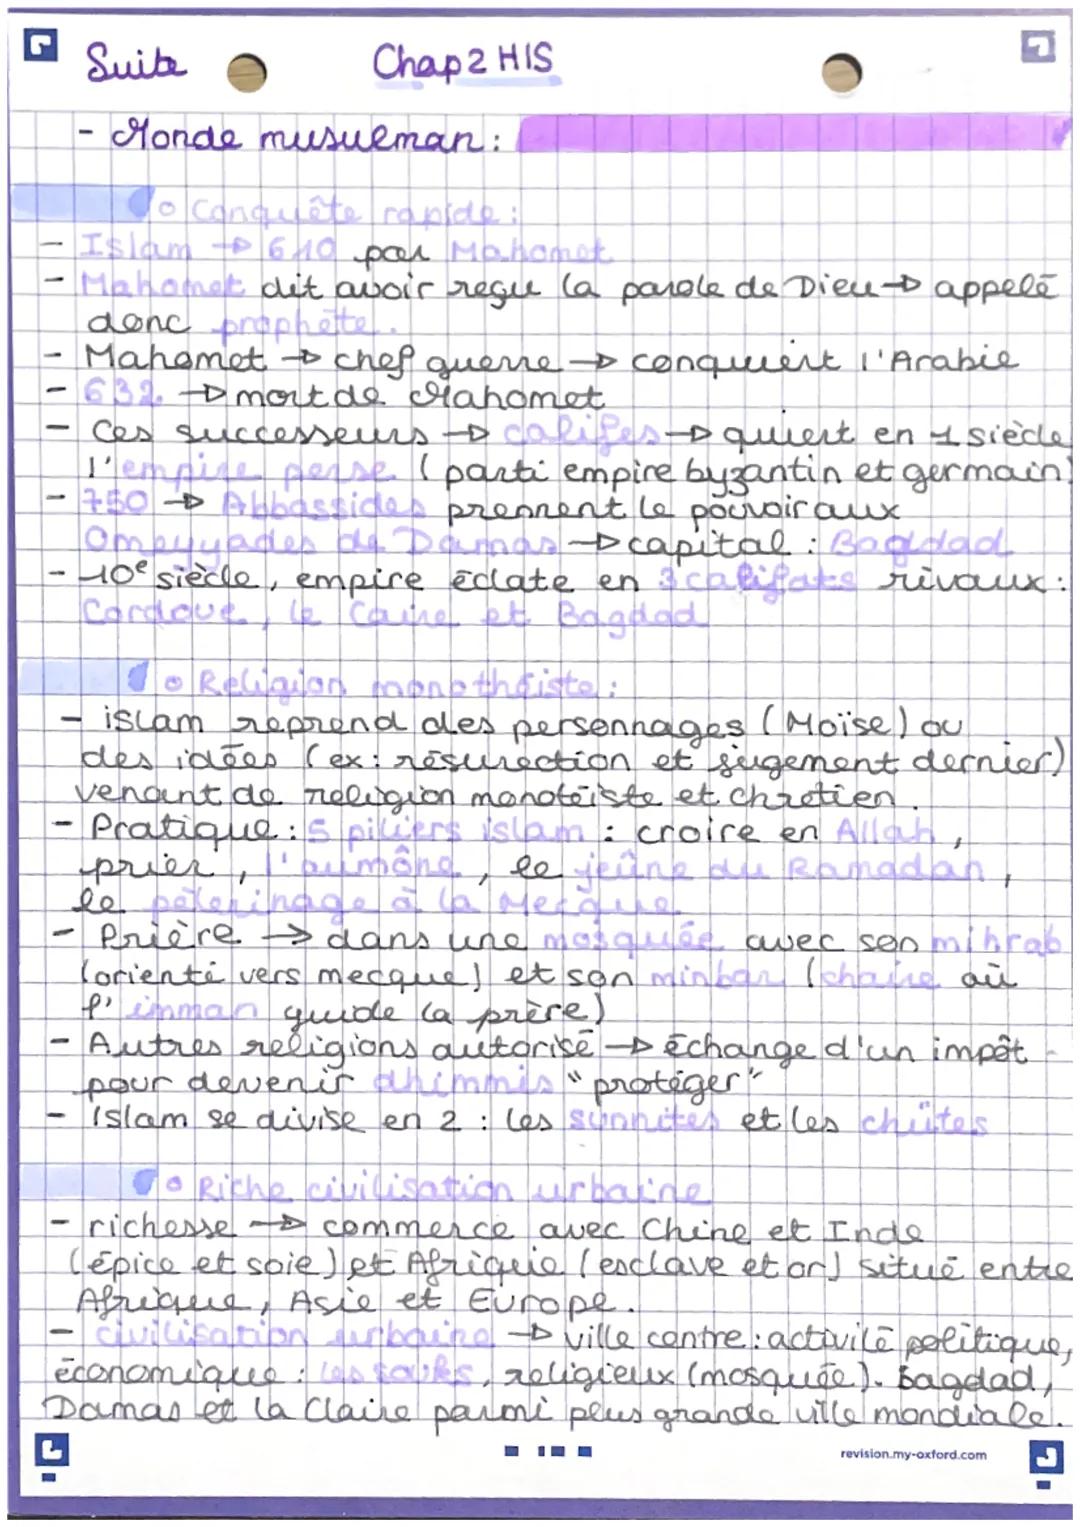 Suite Chap 2 HIS
- Monde musulman :
o Conquête rapide :
- Islam → 610 par Mahomet
- Mahomet dit avoir reçu la parole de Dieu → appelé
donc prophète.
- Mahomet → chef guerre → conquiert l'Arabie
- 632 → mort de Mahomet
- Ces successeurs → califes → quiert en 1 siècle
l'empire perse (parti empire byzantin et germain)
- 750 → Abbassides prennent le pouvoir aux
Omeyyades de Damas → capital : Bagdad
- 10e siècle, empire éclate en 3 califats rivaux :
Cordoue, le Caire et Bagdad
o Religion monothéiste :
- islam reprend des personnages (Moïse) ou
des idées (ex : résurection et jugement dernier)
venant de religion monotéiste et chrétien.
- Pratique : 5 piliers islam : croire en Allah,
prier, l'aumône, le jeûne du Ramadan,
le pélerinage à la Mecque
- Prière → dans une mosquée avec son mihrab
(orienté vers mecque) et son minbar (chaire où
l'imman guide la prère)
- Autres religions autorisé → échange d'un impôt
pour devenir dhimmis "protéger"
- Islam se divise en 2 : les sunnites et les chiites
o Riche civilisation urbaine
- richesse → commerce avec Chine et Inde
(épice et soie) et Afrique (esclave et or) situé entre
Afrique, Asie et Europe.
- civilisation urbaine → ville centre : activité politique,
économique : les souks, religieux (mosquée). Bagdad,
Damas et la Claire parmi plus grande ville mondiale.
revision.my-oxford.com